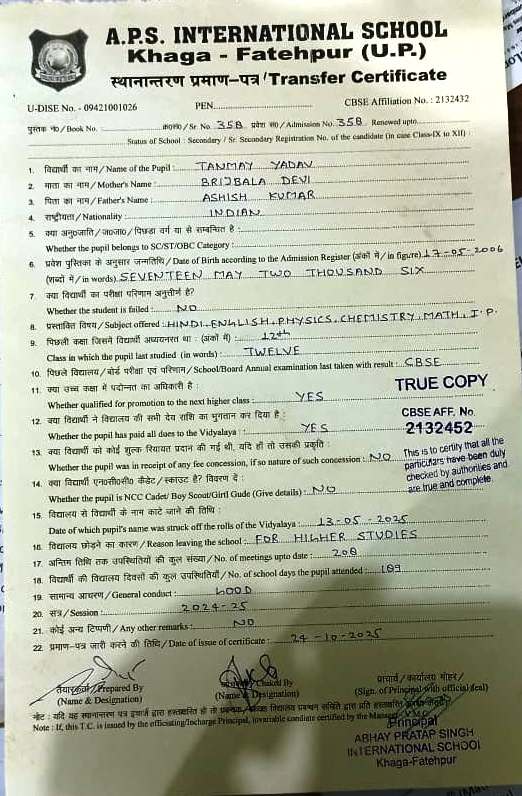 A.P.S. INTERNATIONAL SCHOOL
Khaga - Fatehpur (U.P.)
स्थानान्तरण प्रमाण-पत्र/Transfer Certificate
U-DISE No. - 09421001026 PEN. CBSE Affiliation No. : 2132432
पुस्तक सं0/Book No. : क्र0सं0/Sr. No. 358 प्रवेश सं0/Admission No. 358 Renewed upto
Status of School : Secondary / Sr. Secondary Registration No. of the candidate (in case Class-IX to XII) :
1. विद्यार्थी का नाम/Name of the Pupil : TANMAY YADAV
2. माता का नाम/Mother's Name : BRIJBALA DEVI
3. पिता का नाम/Father's Name : ASHISH KUMAR
4. राष्ट्रीयता/Nationality : INDIAN
5. क्या अनु0जाति/ज0जा0/पिछड़ा वर्ग से सम्बन्धित है :
Whether the pupil belongs to SC/ST/OBC Category :
6. प्रवेश पुस्तिका के अनुसार जन्मतिथि/Date of Birth according to the Admission Register (अंकों में/in figure) 17-05-2006
(शब्दों में/in words) SEVENTEEN MAY TWO THOUSAND SIX
7. क्या विद्यार्थी का परीक्षा परिणाम अनुत्तीर्ण है?
Whether the student is failed : NO
8. प्रस्तावित विषय/Subject offered : HINDI, ENGLISH, PHYSICS, CHEMISTRY, MATH, I.P.
9. पिछली कक्षा जिसमें विद्यार्थी अध्ययनरत था : (अंकों में) 12th
Class in which the pupil last studied (in words) : TWELVE
10. पिछले विद्यालय/बोर्ड परीक्षा एवं परिणाम/School/Board Annual examination last taken with result : CBSE
11. क्या उच्च कक्षा में पदोन्नत का अधिकारी है :
Whether qualified for promotion to the next higher class : YES
TRUE COPY
12. क्या विद्यार्थी ने विद्यालय की सभी देय राशि का भुगतान कर दिया है :
Whether the pupil has paid all dues to the Vidyalaya : YES
CBSE AFF. No.
2132452
13. क्या विद्यार्थी को कोई शुल्क रियायत प्रदान की गई थी, यदि हो तो उसकी प्रकृति :
Whether the pupil was in receipt of any fee concession, if so nature of such concession : NO
This is to certify that all the
particulars have been duly
checked by authorities and
are true and complete
14. क्या विद्यार्थी एन0सी0सी0 कैडेट/स्काउट है? विवरण दें :
Whether the pupil is NCC Cadet/ Boy Scout/Girl Gude (Give details) : NO
15. विद्यालय से विद्यार्थी के नाम काटे जाने की तिथि :
Date of which pupil's name was struck off the rolls of the Vidyalaya : 13-05-2025
16. विद्यालय छोड़ने का कारण/Reason leaving the school : FOR HIGHER STUDIES
17. अन्तिम तिथि तक उपस्थितियों की कुल संख्या/No. of meetings upto date : 208
18. विद्यार्थी की विद्यालय दिवसों की कुल उपस्थितियाँ/No. of school days the pupil attended : 189
19. सामान्य आचरण/General conduct : GOOD
20. सत्र/Session : 2024-25
21. कोई अन्य टिप्पणी/Any other remarks : NO
22. प्रमाण-पत्र जारी करने की तिथि/Date of issue of certificate : 24-10-2025
तैयारकर्ता/Prepared By
(Name & Designation)
Checked By
(Name & Designation)
प्राचार्य/कार्यालय मोहर/
(Sign. of Principal with official seal)
नोट : यदि यह स्थानान्तरण पत्र इंचार्ज द्वारा हस्ताक्षरित हो तो विद्यालय प्रबन्धन समिति द्वारा प्रति हस्ताक्षरित
Note : If, this T.C. is issued by the officiating/Incharge Principal, invariable condiate certified by the Manager
Principal
ABHAY PRATAP SINGH
INTERNATIONAL SCHOOL
Khaga-Fatehpur